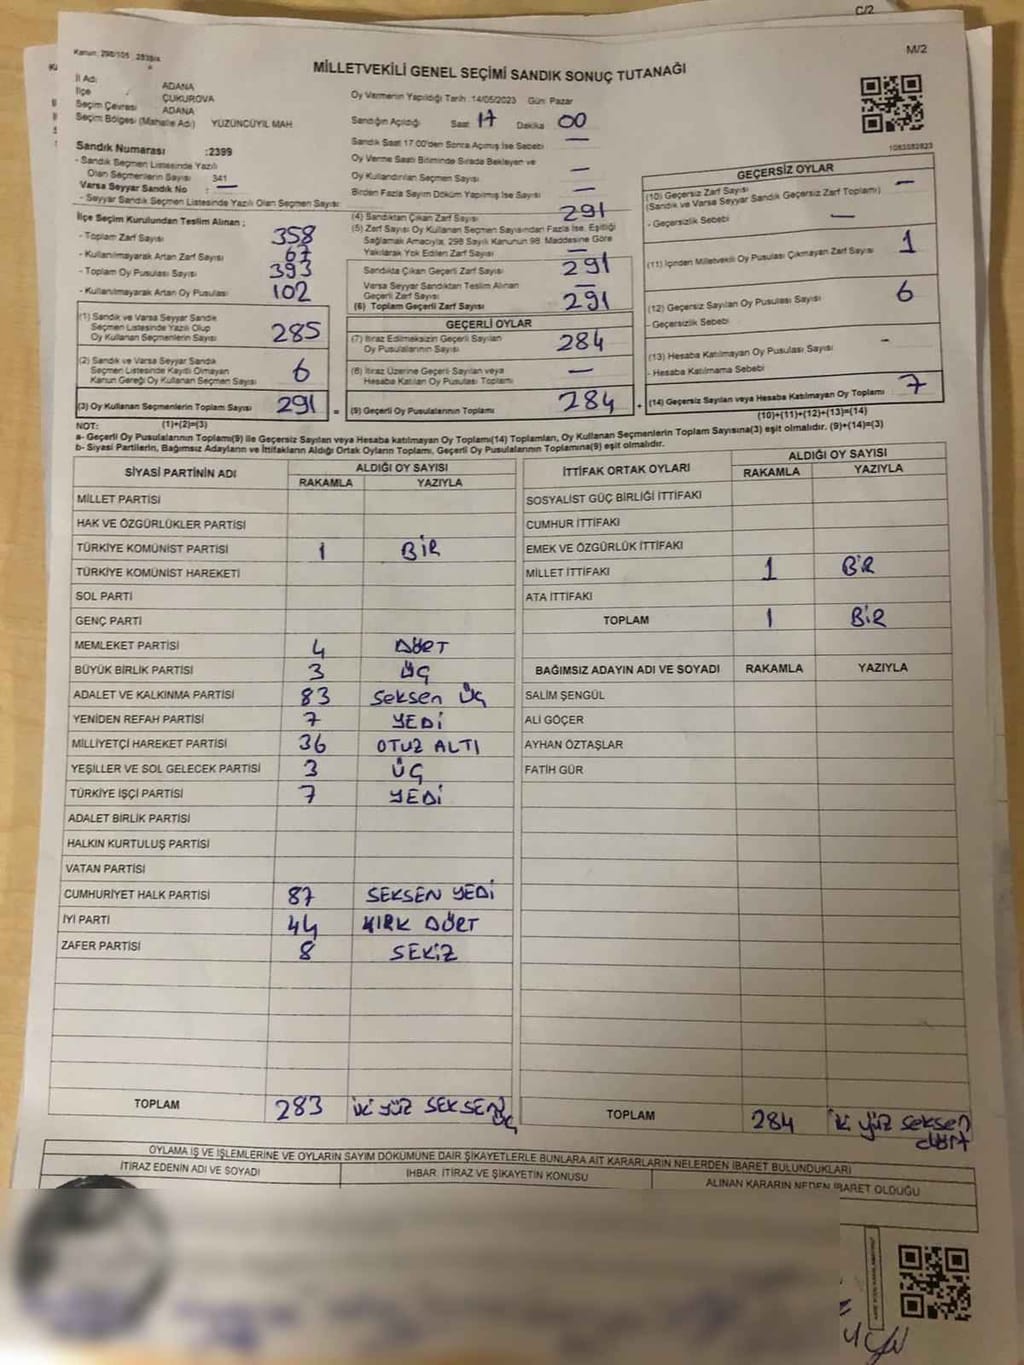 C/2
M/2
Kanun: 298/105 , 2839/a
MİLLETVEKİLİ GENEL SEÇİMİ SANDIK SONUÇ TUTANAĞI
İl Adı ADANA
İlçe ÇUKUROVA
Seçim Çevresi ADANA
Seçim Bölgesi (Mahalle Adı) YÜZÜNCÜYIL MAH
Oy Vermenin Yapıldığı Tarih :14/05/2023 Gün: Pazar
Sandığın Açıldığı Saat 17 Dakika 00
Sandık Saat 17:00'den Sonra Açılmış İse Sebebi —
Oy Verme Saati Bitiminde Sırada Bekleyen ve
Oy Kullandırılan Seçmen Sayısı —
Birden Fazla Sayım Döküm Yapılmış İse Sayısı —
Sandık Numarası :2399
- Sandık Seçmen Listesinde Yazılı
Olan Seçmenlerin Sayısı 341
Varsa Seyyar Sandık No : —
- Seyyar Sandık Seçmen Listesinde Yazılı Olan Seçmen Sayısı:
İlçe Seçim Kurulundan Teslim Alınan ;
- Toplam Zarf Sayısı 358
- Kullanılmayarak Artan Zarf Sayısı 67
- Toplam Oy Pusulası Sayısı 393
- Kullanılmayarak Artan Oy Pusulası 102
(1) Sandık ve Varsa Seyyar Sandık
Seçmen Listesinde Yazılı Olup
Oy Kullanan Seçmenlerin Sayısı 285
(2) Sandık ve Varsa Seyyar Sandık
Seçmen Listesinde Kayıtlı Olmayan
Kanun Gereği Oy Kullanan Seçmen Sayısı 6
(3) Oy Kullanan Seçmenlerin Toplam Sayısı 291 =
(4) Sandıktan Çıkan Zarf Sayısı 291
(5) Zarf Sayısı Oy Kullanan Seçmen Sayısından Fazla İse, Eşitliği
Sağlamak Amacıyla, 298 Sayılı Kanunun 98. Maddesine Göre
Yakılarak Yok Edilen Zarf Sayısı —
Sandıkta Çıkan Geçerli Zarf Sayısı 291
Varsa Seyyar Sandıktan Teslim Alınan
Geçerli Zarf Sayısı —
(6) Toplam Geçerli Zarf Sayısı 291
GEÇERLİ OYLAR
(7) İtiraz Edilmeksizin Geçerli Sayılan
Oy Pusulalarının Sayısı 284
(8) İtiraz Üzerine Geçerli Sayılan veya
Hesaba Katılan Oy Pusulası Toplamı —
(9) Geçerli Oy Pusulalarının Toplamı 284 +
1083082823
GEÇERSİZ OYLAR
(10) Geçersiz Zarf Sayısı —
(Sandık ve Varsa Seyyar Sandık Geçersiz Zarf Toplamı)
- Geçersizlik Sebebi —
(11) İçinden Milletvekili Oy Pusulası Çıkmayan Zarf Sayısı 1
(12) Geçersiz Sayılan Oy Pusulası Sayısı 6
- Geçersizlik Sebebi
(13) Hesaba Katılmayan Oy Pusulası Sayısı -
- Hesaba Katılmama Sebebi
(14) Geçersiz Sayılan veya Hesaba Katılmayan Oy Toplamı 7
NOT: (1)+(2)=(3)
(10)+(11)+(12)+(13)=(14)
a- Geçerli Oy Pusulalarının Toplamı(9) ile Geçersiz Sayılan veya Hesaba katılmayan Oy Toplamı(14) Toplamları, Oy Kullanan Seçmenlerin Toplam Sayısına(3) eşit olmalıdır. (9)+(14)=(3)
b- Siyasi Partilerin, Bağımsız Adayların ve İttifakların Aldığı Ortak Oyların Toplamı, Geçerli Oy Pusulalarının Toplamına(9) eşit olmalıdır.
SİYASİ PARTİNİN ADI ALDIĞI OY SAYISI
RAKAMLA YAZIYLA
MİLLET PARTİSİ
HAK VE ÖZGÜRLÜKLER PARTİSİ
TÜRKİYE KOMÜNİST PARTİSİ 1 BİR
TÜRKİYE KOMÜNİST HAREKETİ
SOL PARTİ
GENÇ PARTİ
MEMLEKET PARTİSİ 4 DÖRT
BÜYÜK BİRLİK PARTİSİ 3 ÜÇ
ADALET VE KALKINMA PARTİSİ 83 Seksen ÜÇ
YENİDEN REFAH PARTİSİ 7 YEDİ
MİLLİYETÇİ HAREKET PARTİSİ 36 OTUZ ALTI
YEŞİLLER VE SOL GELECEK PARTİSİ 3 ÜÇ
TÜRKİYE İŞÇİ PARTİSİ 7 YEDİ
ADALET BİRLİK PARTİSİ
HALKIN KURTULUŞ PARTİSİ
VATAN PARTİSİ
CUMHURİYET HALK PARTİSİ 87 SEKSEN YEDİ
İYİ PARTİ 44 KIRK DÖRT
ZAFER PARTİSİ 8 SEKİZ
TOPLAM 283 iki YÜZ SEKSEN ÜÇ
İTTİFAK ORTAK OYLARI ALDIĞI OY SAYISI
RAKAMLA YAZIYLA
SOSYALİST GÜÇ BİRLİĞİ İTTİFAKI
CUMHUR İTTİFAKI
EMEK VE ÖZGÜRLÜK İTTİFAKI
MİLLET İTTİFAKI 1 BİR
ATA İTTİFAKI
TOPLAM 1 BİR
BAĞIMSIZ ADAYIN ADI VE SOYADI RAKAMLA YAZIYLA
SALİM ŞENGÜL
ALİ GÖÇER
AYHAN ÖZTAŞLAR
FATİH GÜR
TOPLAM 284 iki yüz seksen
dört
OYLAMA İŞ VE İŞLEMLERİNE VE OYLARIN SAYIM DÖKÜMÜNE DAİR ŞİKAYETLERLE BUNLARA AİT KARARLARIN NELERDEN İBARET BULUNDUKLARI
İTİRAZ EDENİN ADI VE SOYADI İHBAR, İTİRAZ VE ŞİKAYETİN KONUSU ALINAN KARARIN NEDEN İBARET OLDUĞU